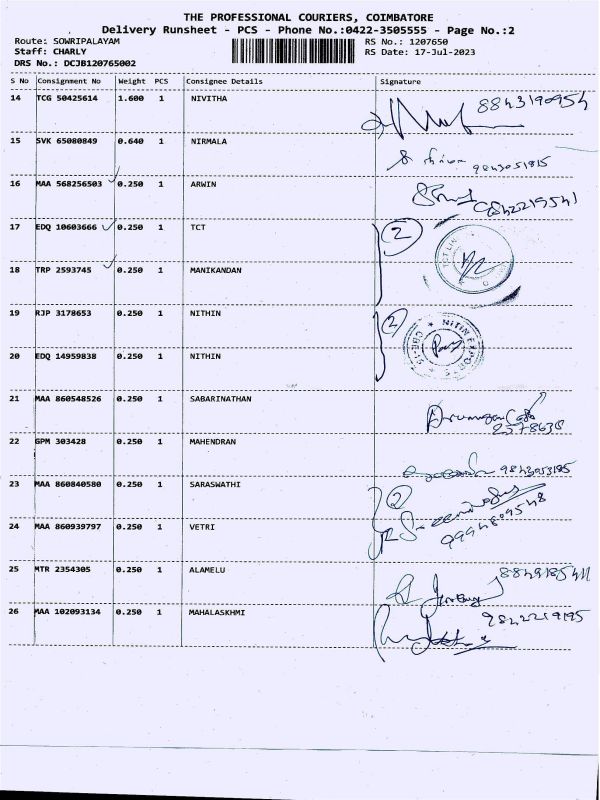 THE PROFESSIONAL COURIERS, COIMBATORE
Delivery Runsheet - PCS - Phone No.:0422-3505555 - Page No.:2
Route: SOWRIPALAYAM RS No.: 1207650
Staff: CHARLY RS Date: 17-Jul-2023
DRS No.: DCJB120765002
S No Consignment No Weight PCS Consignee Details Signature
14 TCG 50425614 1.600 1 NIVITHA 8843190954
15 SVK 65080849 0.640 1 NIRMALA 9843051815
16 MAA 568256503 0.250 1 ARWIN 9842219541
17 EDQ 10603666 0.250 1 TCT 2
18 TRP 2593745 0.250 1 MANIKANDAN
19 RJP 3178653 0.250 1 NITHIN 2 NITIN EXPORTS
20 EDQ 14959838 0.250 1 NITHIN
21 MAA 860548526 0.250 1 SABARINATHAN
2578638
22 GPM 303428 0.250 1 MAHENDRAN 9843953185
23 MAA 860840580 0.250 1 SARASWATHI 2
24 MAA 860939797 0.250 1 VETRI 9994809548
25 MTR 2354305 0.250 1 ALAMELU
26 MAA 102093134 0.250 1 MAHALASKHMI 9842219195